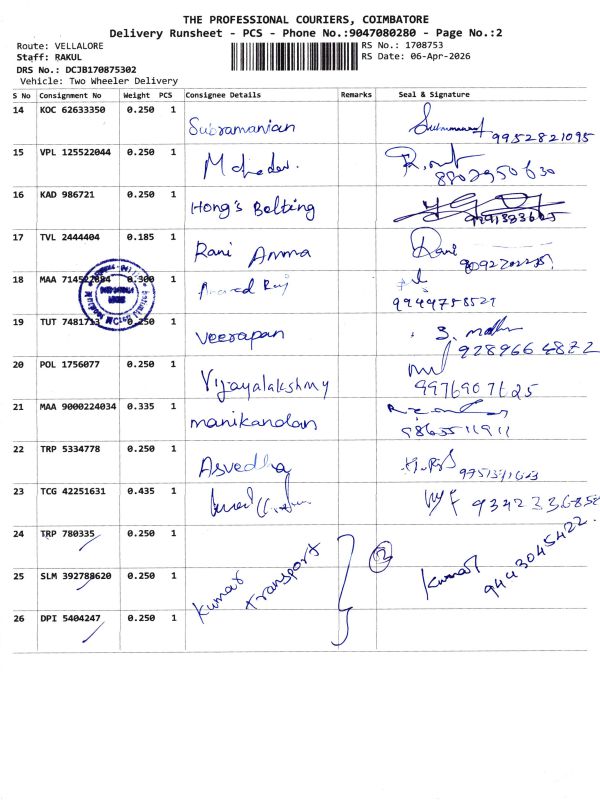 THE PROFESSIONAL COURIERS, COIMBATORE
Delivery Runsheet - PCS - Phone No.:9047080280 - Page No.:2
Route: VELLALORE
RS No.: 1708753
Staff: RAKUL
RS Date: 06-Apr-2026
DRS No.: DCJB170875302
Vehicle: Two Wheeler Delivery
S No Consignment No Weight PCS Consignee Details Remarks Seal & Signature
14 KOC 62633350 0.250 1
Subramanian 9952821095
15 VPL 125522044 0.250 1
16 KAD 986721 0.250 1
Hong's Belting
17 TVL 2444404 0.185 1
Rani Amma Rani
18 MAA 0.300 1
19 TUT 0.250 1
Veerapan 9289664872
20 POL 1756077 0.250 1
Vijayalakshmy 9976907625
21 MAA 9000224034 0.335 1
manikandan
22 TRP 5334778 0.250 1
Asvedha
23 TCG 42251631 0.435 1
9342336858
24 TRP 780335 0.250 1
Kumar Transport
Kumar 9443045422
25 SLM 392788620 0.250 1
26 DPI 5404247 0.250 1